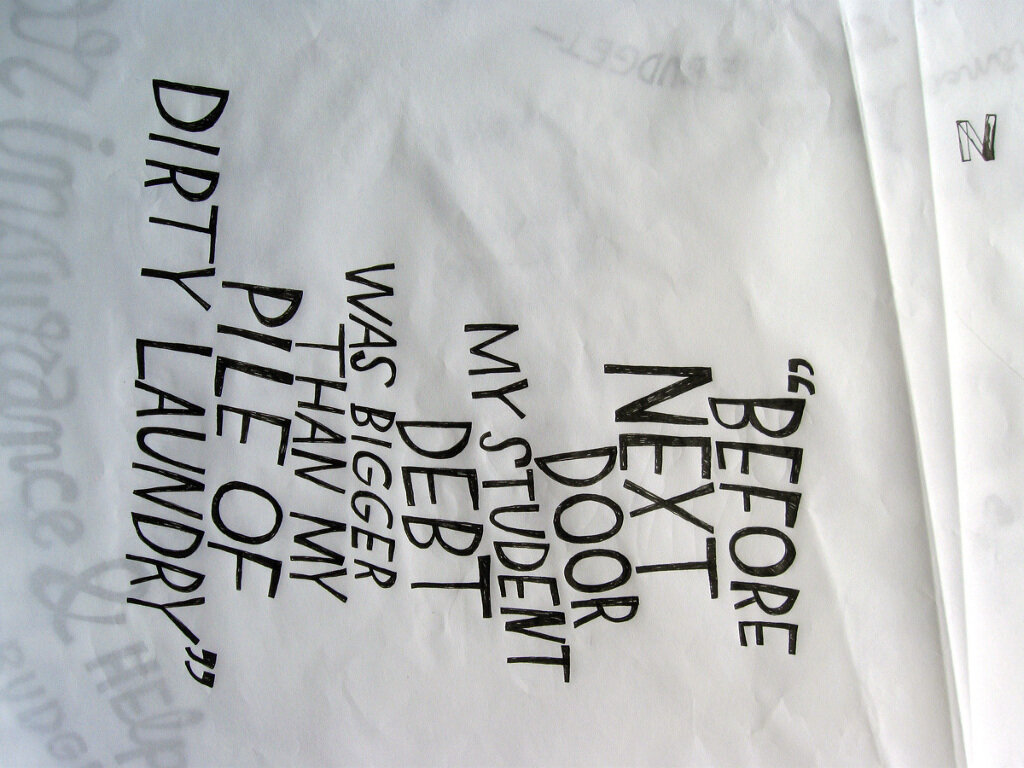 “BEFORE
NEXT
DOOR
MY STUDENT
DEBT
WAS BIGGER
THAN MY
PILE OF
DIRTY LAUNDRY”
N
BUDGET—
&
HELP